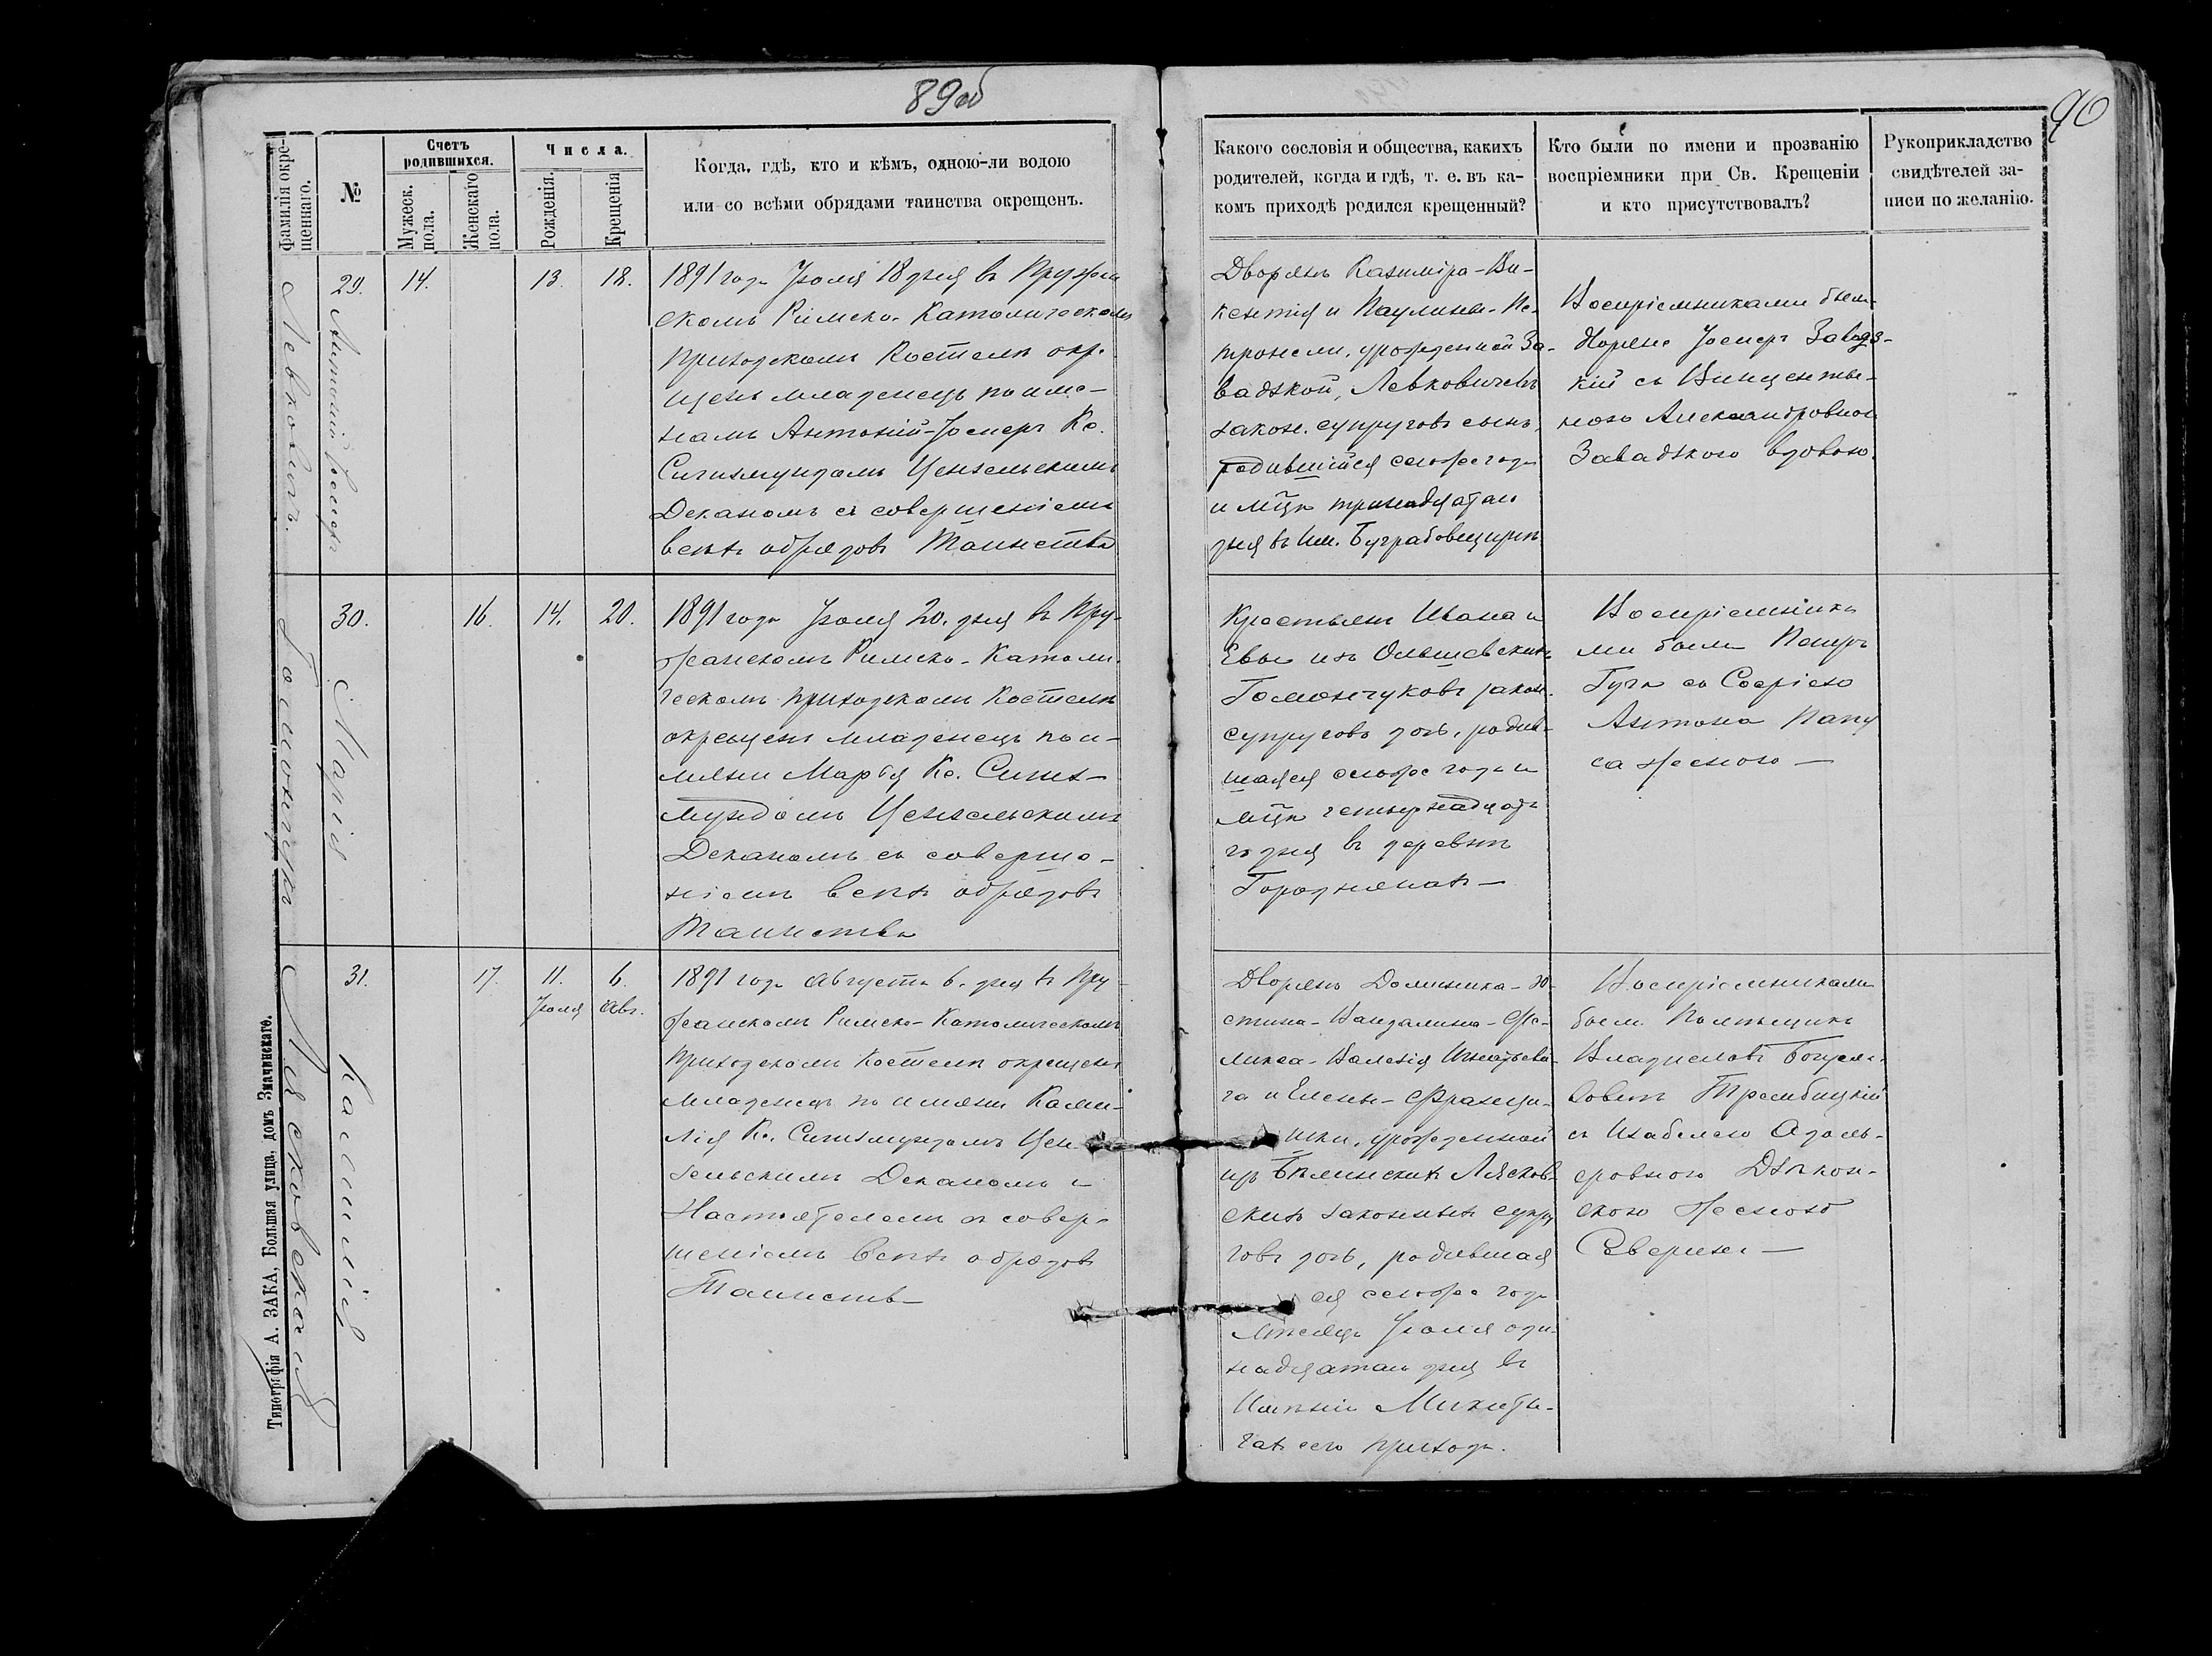 89об
90
Фамилія окре-
щеннаго.
№
Счетъ
родившихся.
Мужеск.
пола.
Женскаго
пола.
Числа.
Рожденія.
Крещенія
Когда, гдѣ, кто и кѣмъ, одною-ли водою
или со всѣми обрядами таинства окрещенъ.
Какого сословія и общества, какихъ
родителей, когда и гдѣ, т. е. въ ка-
комъ приходѣ родился крещенный?
Кто были по имени и прозванію
воспріемники при Св. Крещеніи
и кто присутствовалъ?
Рукоприкладство
свидѣтелей за-
писи по желанію.
Левковичъ.
29.
Антоній Іосифъ
14.
13.
18.
1891 года Іюля 18 дня въ Пружан
скомъ Римско-Католическомъ
приходскомъ Костелѣ окре
щенъ младенецъ по име-
намъ Антоній-Іосифъ Кс.
Сигизмундомъ Цензельскимъ
Деканомъ съ совершеніемъ
всѣхъ обрядовъ Таинства
Дворянъ Казиміра-Ви-
кентія и Паулины-Пе-
тронели, урожденной За-
вадзкой, Левковичевъ
закон. супруговъ сынъ,
родившійся сего же года
и мѣца тринадцатаго
дня въ Им.
Воспріемниками были
Дворяне Іосифъ Завадз-
кій съ Винценты-
ною Александровною
Завадзкою вдовою.
Гомончука
30.
Марія
16.
14.
20.
1891 года Іюля 20. дня въ Пру-
жанскомъ Римско-Католи
ческомъ приходскомъ Костелѣ
окрещенъ младенецъ по и-
мени Марья Кс. Сигиз-
мундомъ Цензельскимъ
Деканомъ съ соверше-
ніемъ всѣхъ обрядовъ
Таинства
Крестьянъ Ивана и
Евы изъ Ольшевскихъ
Гомончуковъ закон.
супруговъ дочь, родив-
шаяся сего же года и
мѣца четырнадцата
го дня въ деревнѣ
Городнянахъ —
Воспріемника
ми были
съ Софіею
Антона
женою —
Лясковская
31.
Камилія
17.
11.
Іюля
6.
Авг.
1891 года Августа 6. дня въ Пру-
жанскомъ Римско-Католическомъ
Приходскомъ Костелѣ окрещенъ
младенецъ по имени Ками-
лія Кс. Сигизмундомъ Цен
зельскимъ Деканомъ и
Настоятелемъ съ совер-
шеніемъ всѣхъ обрядовъ
Таинства
Дворянъ Доминика-Ю-
стина-Вандалина-Фе-
ликса-Валенія Игнатьеви-
ча и Елены-Францы-
шки, урожденной
изъ Бѣлинскихъ Лясков-
скихъ законныхъ супру
говъ дочь, родившая
ся сего же года
мѣсяца Іюля оди-
надцатаго дня въ
Имѣніи Микити-
чахъ сего прихода.
Воспріемниками
были Помѣщикъ
Владиславъ
Трембицкій
съ Изабелею Адоль-
фовною
скою женою
Северина —
Типографія А. ЗАКА, Большая улица, домъ Значинскаго.